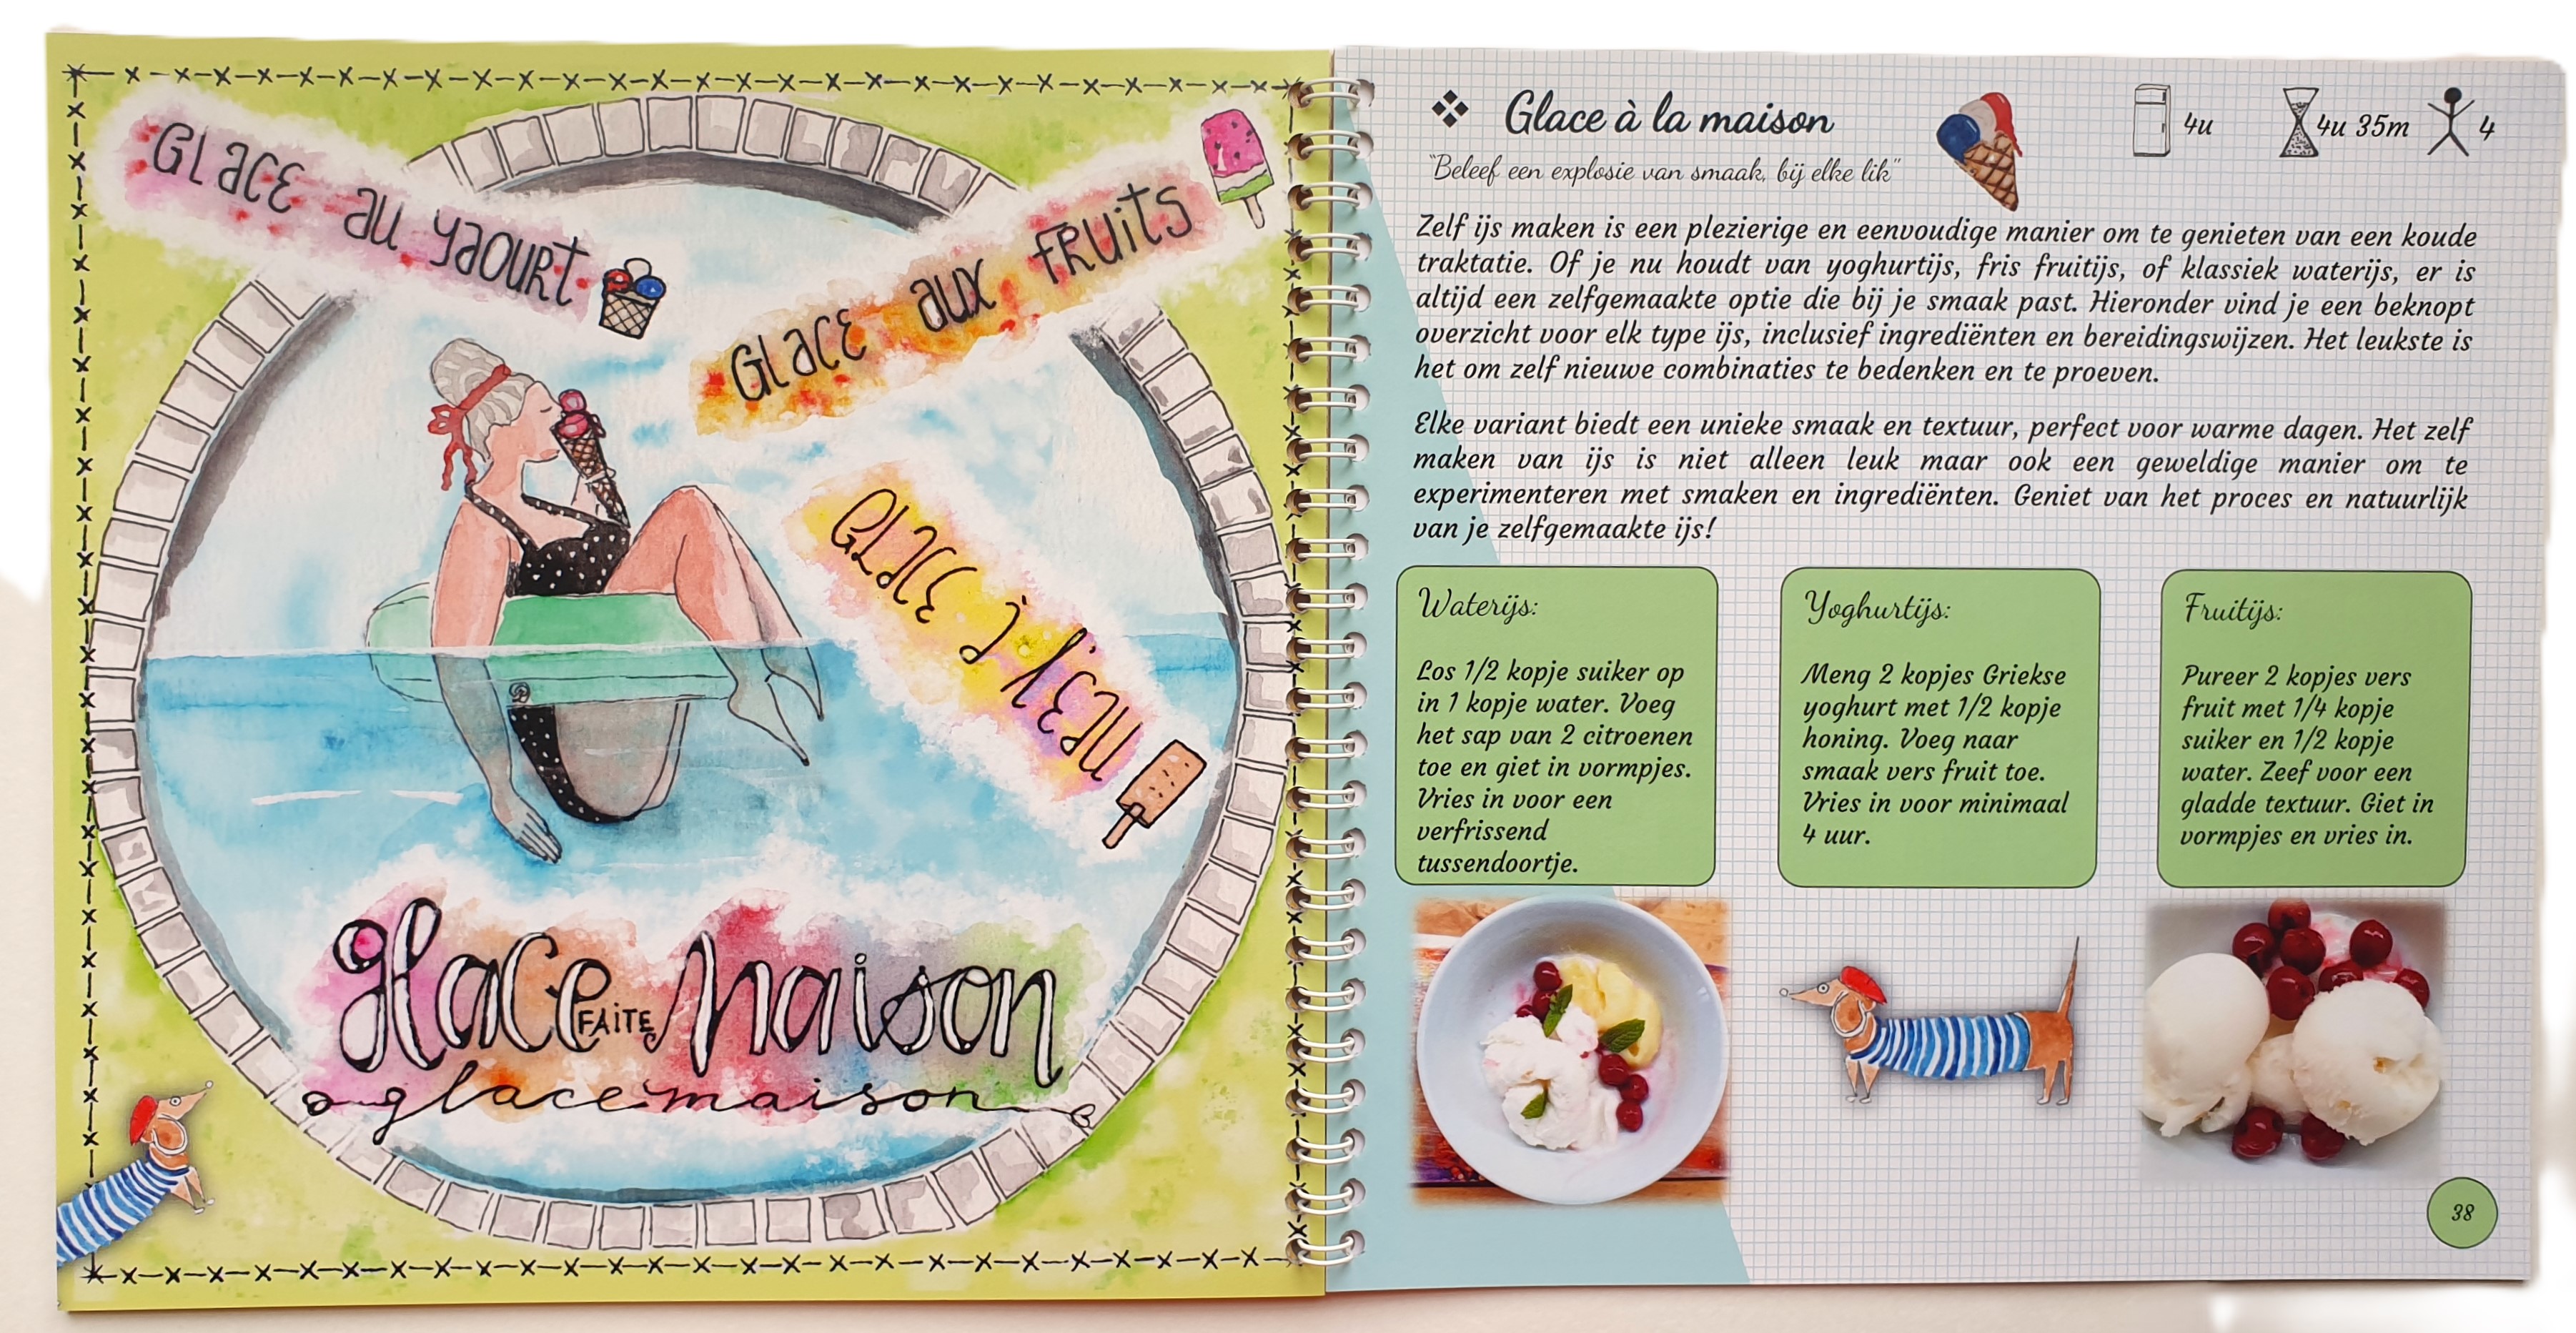 GLacE au yaourt
GLacE aux fRuits
GLacE à l'eau
glace FAiTE Maison
glace maison
Glace à la maison
4u
4u 35m
4
"Beleef een explosie van smaak, bij elke lik"
Zelf ijs maken is een plezierige en eenvoudige manier om te genieten van een koude
traktatie. Of je nu houdt van yoghurtijs, fris fruitijs, of klassiek waterijs, er is
altijd een zelfgemaakte optie die bij je smaak past. Hieronder vind je een beknopt
overzicht voor elk type ijs, inclusief ingrediënten en bereidingswijzen. Het leukste is
het om zelf nieuwe combinaties te bedenken en te proeven.
Elke variant biedt een unieke smaak en textuur, perfect voor warme dagen. Het zelf
maken van ijs is niet alleen leuk maar ook een geweldige manier om te
experimenteren met smaken en ingrediënten. Geniet van het proces en natuurlijk
van je zelfgemaakte ijs!
Waterijs:
Los 1/2 kopje suiker op
in 1 kopje water. Voeg
het sap van 2 citroenen
toe en giet in vormpjes.
Vries in voor een
verfrissend
tussendoortje.
Yoghurtijs:
Meng 2 kopjes Griekse
yoghurt met 1/2 kopje
honing. Voeg naar
smaak vers fruit toe.
Vries in voor minimaal
4 uur.
Fruitijs:
Pureer 2 kopjes vers
fruit met 1/4 kopje
suiker en 1/2 kopje
water. Zeef voor een
gladde textuur. Giet in
vormpjes en vries in.
38